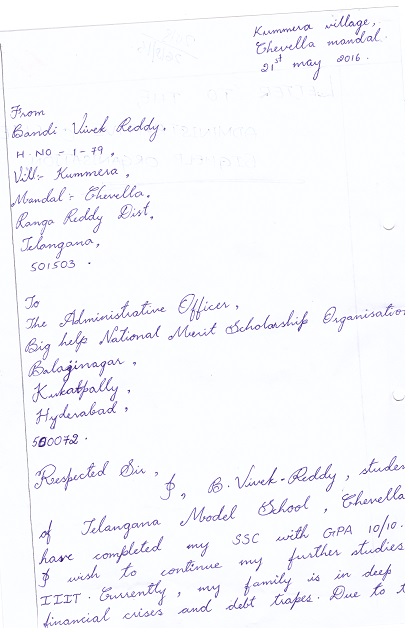 Kummera village,
Chevella mandal.
21st may 2016.
From
Bandi. Vivek Reddy.
H.NO - 1-79,
Vill:- Kummera,
Mandal:- Chevella,
Ranga Reddy Dist,
Telangana,
501503.
To
The Administrative Officer,
Big help National Merit Scholarship Organisation
Balajinagar,
Kukatpally,
Hyderabad,
500072.
Respected Sir,
I, B. Vivek-Reddy, studen
of Telangana Model School, Chevella
have completed my SSC with GPA 10/10.
I wish to continue my further studies
IIIT. Currently, my family is in deep
financial crises and debt trapes. Due to